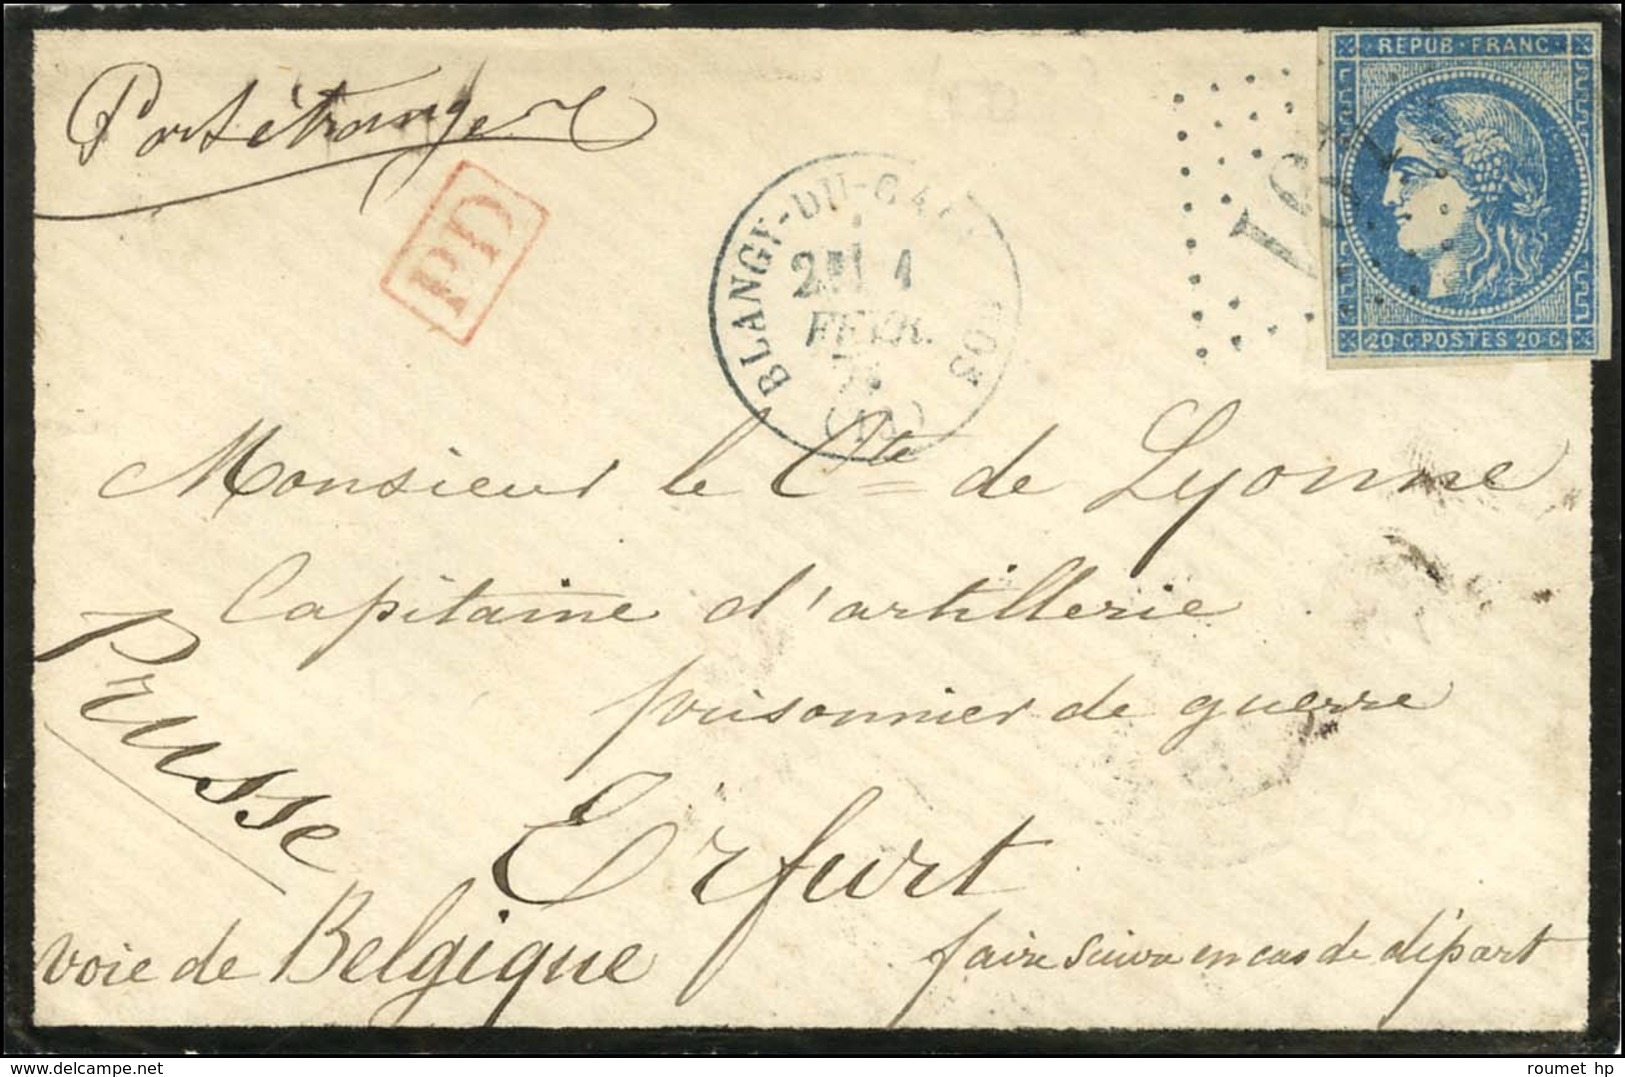 Port étranger
PD
REPUB·FRANC
20 C·POSTES 20·C
BLANGY-DU-CAL
2E 1
FEVR.
(13)
Monsieur le Cte de Lyonne
Capitaine d'artillerie
prisonnier de guerre
Prusse
Erfurt
voie de Belgique
faire suivre en cas de départ
www.delcampe.net
roumet hp